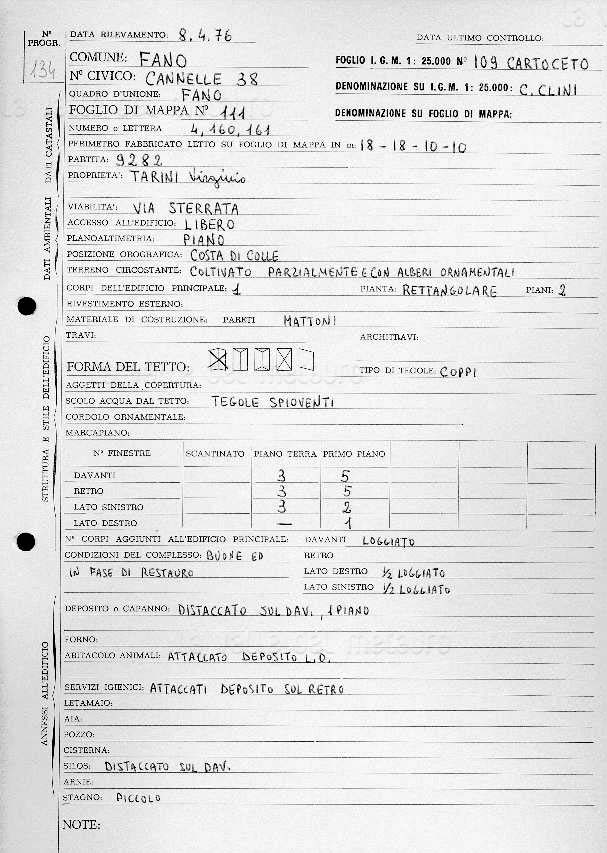 Nº PROGR. 134
DATA RILEVAMENTO: 8.4.76 DATA ULTIMO CONTROLLO:
COMUNE: FANO FOGLIO I.G.M. 1: 25.000 Nº 109 CARTOCETO
Nº CIVICO: CANNELLE 38 DENOMINAZIONE SU I.G.M. 1: 25.000: C. CLINI
QUADRO D'UNIONE: FANO
FOGLIO DI MAPPA Nº 111 DENOMINAZIONE SU FOGLIO DI MAPPA:
NUMERO o LETTERA 4, 160, 161
PERIMETRO FABBRICATO LETTO SU FOGLIO DI MAPPA IN m: 18 - 18 - 10 - 10
PARTITA: 9282
PROPRIETA': TARINI Virginio
DATI CATASTALI
VIABILITA': VIA STERRATA
ACCESSO ALL'EDIFICIO: LIBERO
PLANOALTIMETRIA: PIANO
POSIZIONE OROGRAFICA: COSTA DI COLLE
TERRENO CIRCOSTANTE: COLTIVATO PARZIALMENTE E CON ALBERI ORNAMENTALI
DATI AMBIENTALI
CORPI DELL'EDIFICIO PRINCIPALE: 1 PIANTA: RETTANGOLARE PIANI: 2
RIVESTIMENTO ESTERNO:
MATERIALE DI COSTRUZIONE: PARETI MATTONI
TRAVI: ARCHITRAVI:
FORMA DEL TETTO: TIPO DI TEGOLE: COPPI
AGGETTI DELLA COPERTURA:
SCOLO ACQUA DAL TETTO: TEGOLE SPIOVENTI
CORDOLO ORNAMENTALE:
MARCAPIANO:
Nº FINESTRE SCANTINATO PIANO TERRA PRIMO PIANO
DAVANTI 3 5
RETRO 3 5
LATO SINISTRO 3 2
LATO DESTRO — 1
STRUTTURA E STILE DELL'EDIFICIO
Nº CORPI AGGIUNTI ALL'EDIFICIO PRINCIPALE: DAVANTI LOGGIATO
CONDIZIONI DEL COMPLESSO: BUONE ED RETRO
IN FASE DI RESTAURO LATO DESTRO ½ LOGGIATO
LATO SINISTRO ½ LOGGIATO
DEPOSITO o CAPANNO: DISTACCATO SUL DAV., 1 PIANO
FORNO:
ABITACOLO ANIMALI: ATTACCATO DEPOSITO L.D.
SERVIZI IGIENICI: ATTACCATI DEPOSITO SUL RETRO
LETAMAIO:
AIA:
POZZO:
CISTERNA:
SILOS: DISTACCATO SUL DAV.
ARNIE:
STAGNO: PICCOLO
ANNESSI ALL'EDIFICIO
NOTE: